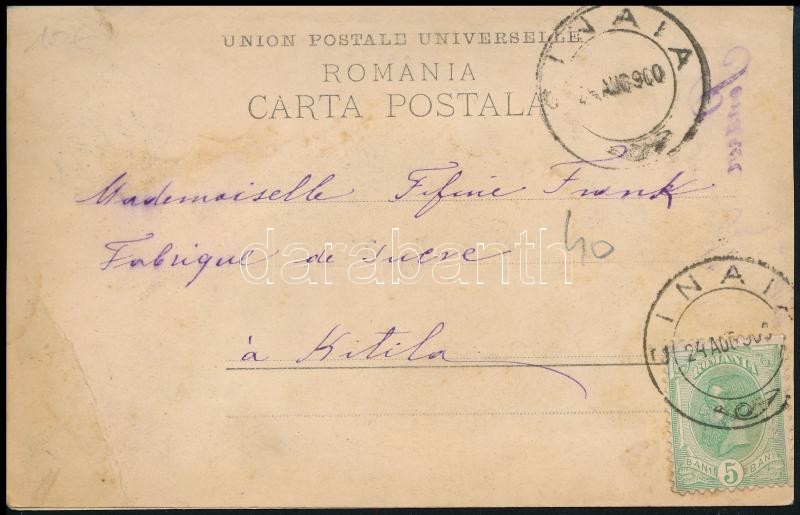 10€
UNION POSTALE UNIVERSELLE
ROMÂNIA
CARTA POSTALA
SINAIA
24 AUG 900
Mademoiselle Fifine Frank
Fabrique de sucre
40
à Kitila
darabanth
SINAIA
24 AUG 900
ROMANIA
BANI 5 BANI